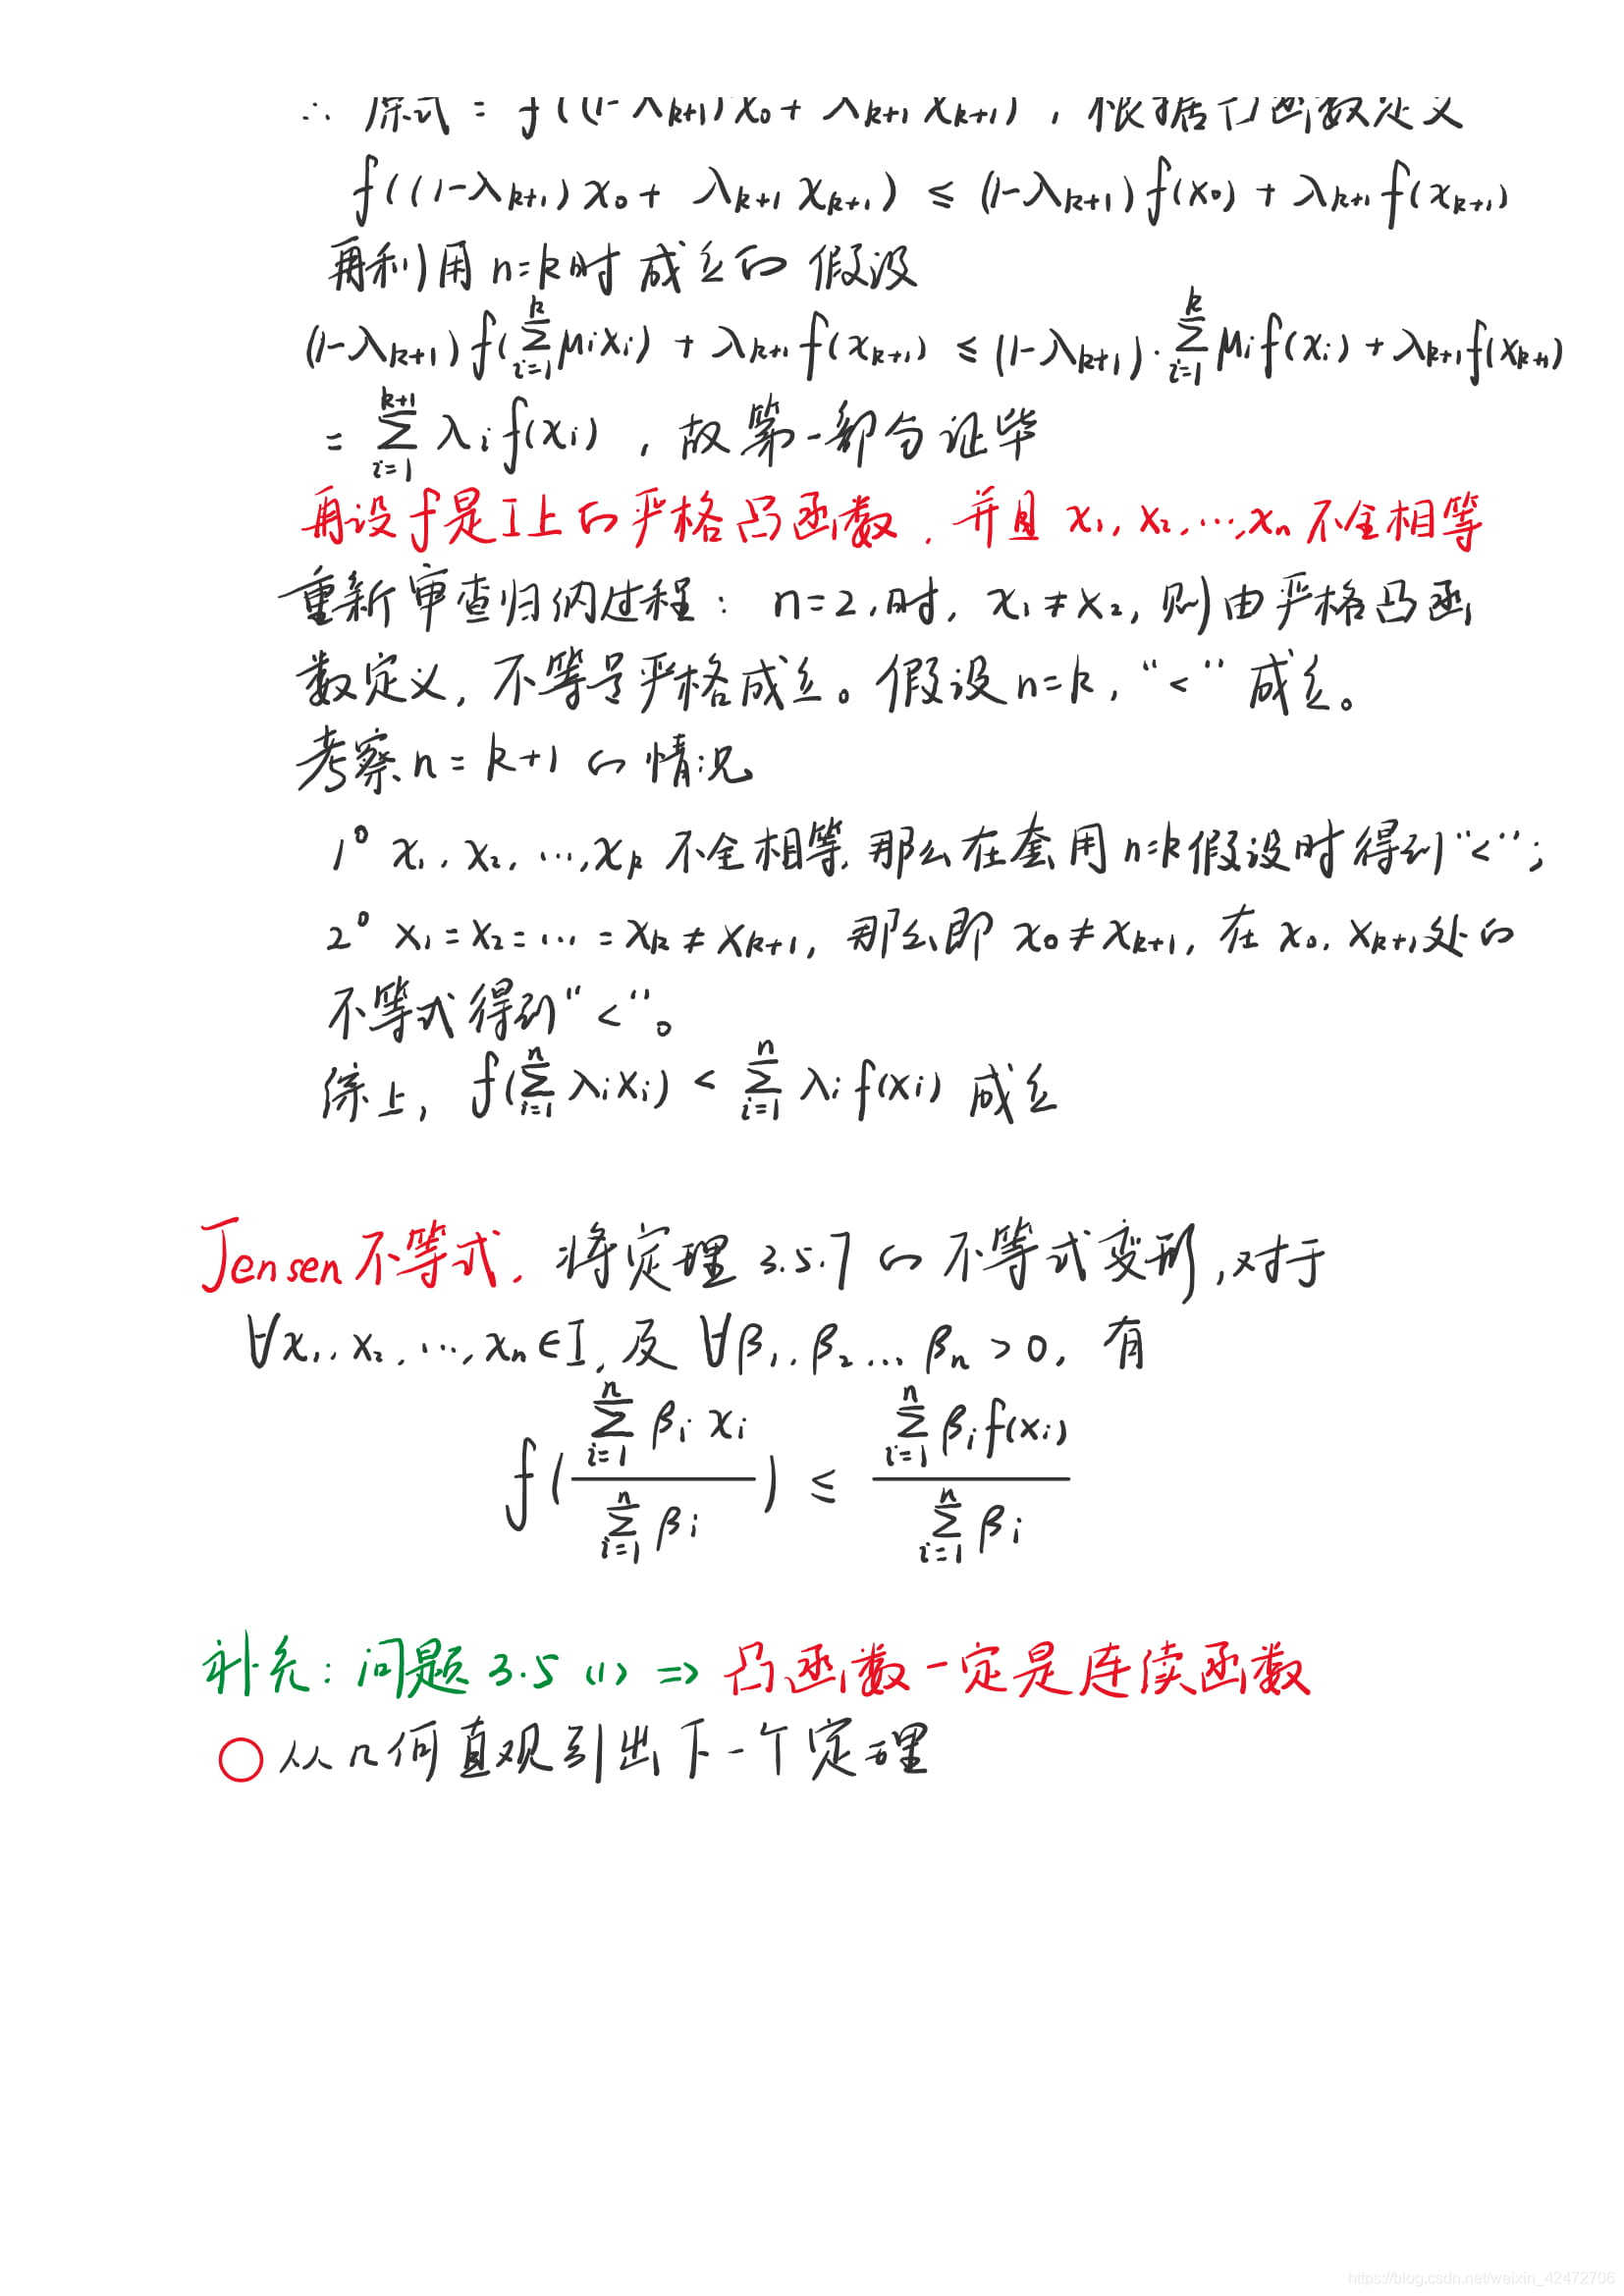 ∴ 原式 = f((1-λ_{k+1})x_0 + λ_{k+1} x_{k+1}) , 根据凸函数定义
f((1-λ_{k+1})x_0 + λ_{k+1} x_{k+1}) ≤ (1-λ_{k+1})f(x_0) + λ_{k+1}f(x_{k+1})
再利用n=k时成立的假设
(1-λ_{k+1})f(∑_{i=1}^{k} μ_i x_i) + λ_{k+1}f(x_{k+1}) ≤ (1-λ_{k+1})·∑_{i=1}^{k} μ_i f(x_i) + λ_{k+1}f(x_{k+1})
= ∑_{i=1}^{k+1} λ_i f(x_i) , 故第一部分证毕
再设f是I上的严格凸函数, 并且 x_1, x_2, …, x_n 不全相等
重新审查归纳过程: n=2,时, x_1≠x_2, 则由严格凸函
数定义, 不等号严格成立。假设n=k, “<”成立。
考察n=k+1的情况
1° x_1, x_2, …, x_k 不全相等, 那么在套用n=k假设时得到“<”;
2° x_1=x_2=…=x_k≠x_{k+1}, 那么即 x_0≠x_{k+1}, 在 x_0, x_{k+1}处的
不等式得到“<”。
综上, f(∑_{i=1}^{n} λ_i x_i) < ∑_{i=1}^{n} λ_i f(x_i) 成立
Jensen不等式. 将定理3.5.7的不等式变形,对于
∀x_1, x_2, …, x_n∈I, 及 ∀β_1, β_2 … β_n > 0, 有
f( (∑_{i=1}^{n} β_i x_i) / (∑_{i=1}^{n} β_i) ) ≤ (∑_{i=1}^{n} β_i f(x_i)) / (∑_{i=1}^{n} β_i)
补充: 问题3.5 (1) ⇒ 凸函数一定是连续函数
○ 从几何直观引出下一个定理
https://blog.csdn.net/weixin_42472706